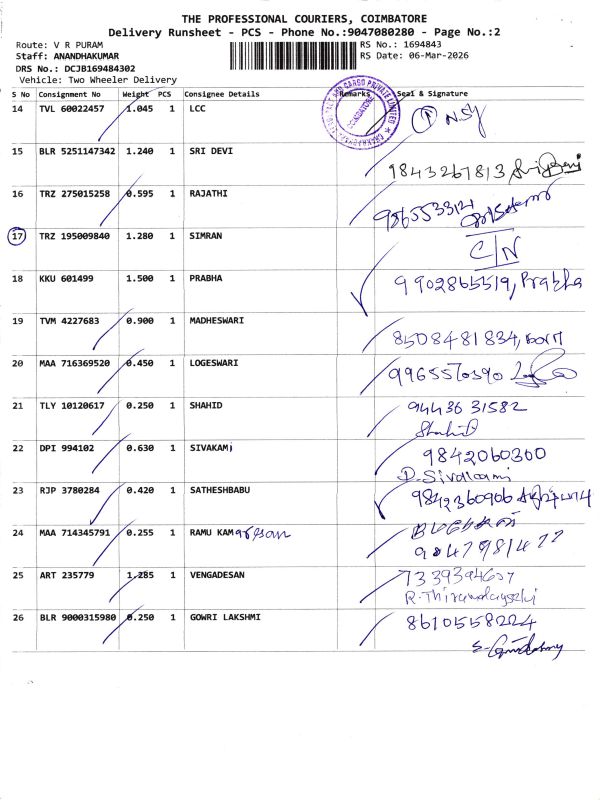 THE PROFESSIONAL COURIERS, COIMBATORE
Delivery Runsheet - PCS - Phone No.:9047080280 - Page No.:2
Route: V R PURAM
RS No.: 1694843
Staff: ANANDHAKUMAR
RS Date: 06-Mar-2026
DRS No.: DCJB169484302
Vehicle: Two Wheeler Delivery
S No Consignment No Weight PCS Consignee Details Remarks Seal & Signature
14 TVL 60022457 1.045 1 LCC
15 BLR 5251147342 1.240 1 SRI DEVI
9843267813
16 TRZ 275015258 0.595 1 RAJATHI
9865533121
17 TRZ 195009840 1.280 1 SIMRAN C/N
18 KKU 601499 1.500 1 PRABHA 9902865519, Prabha
19 TVM 4227683 0.900 1 MADHESWARI
8508481834,
20 MAA 716369520 0.450 1 LOGESWARI
9965570590
21 TLY 10120617 0.250 1 SHAHID 94436 31582
Shahid
22 DPI 994102 0.630 1 SIVAKAMi 9842060300
D. Sivakami
23 RJP 3780284 0.420 1 SATHESHBABU 9842360906
24 MAA 714345791 0.255 1 RAMU KAM
25 ART 235779 1.285 1 VENGADESAN 7339394607
26 BLR 9000315980 0.250 1 GOWRI LAKSHMI 8610558224